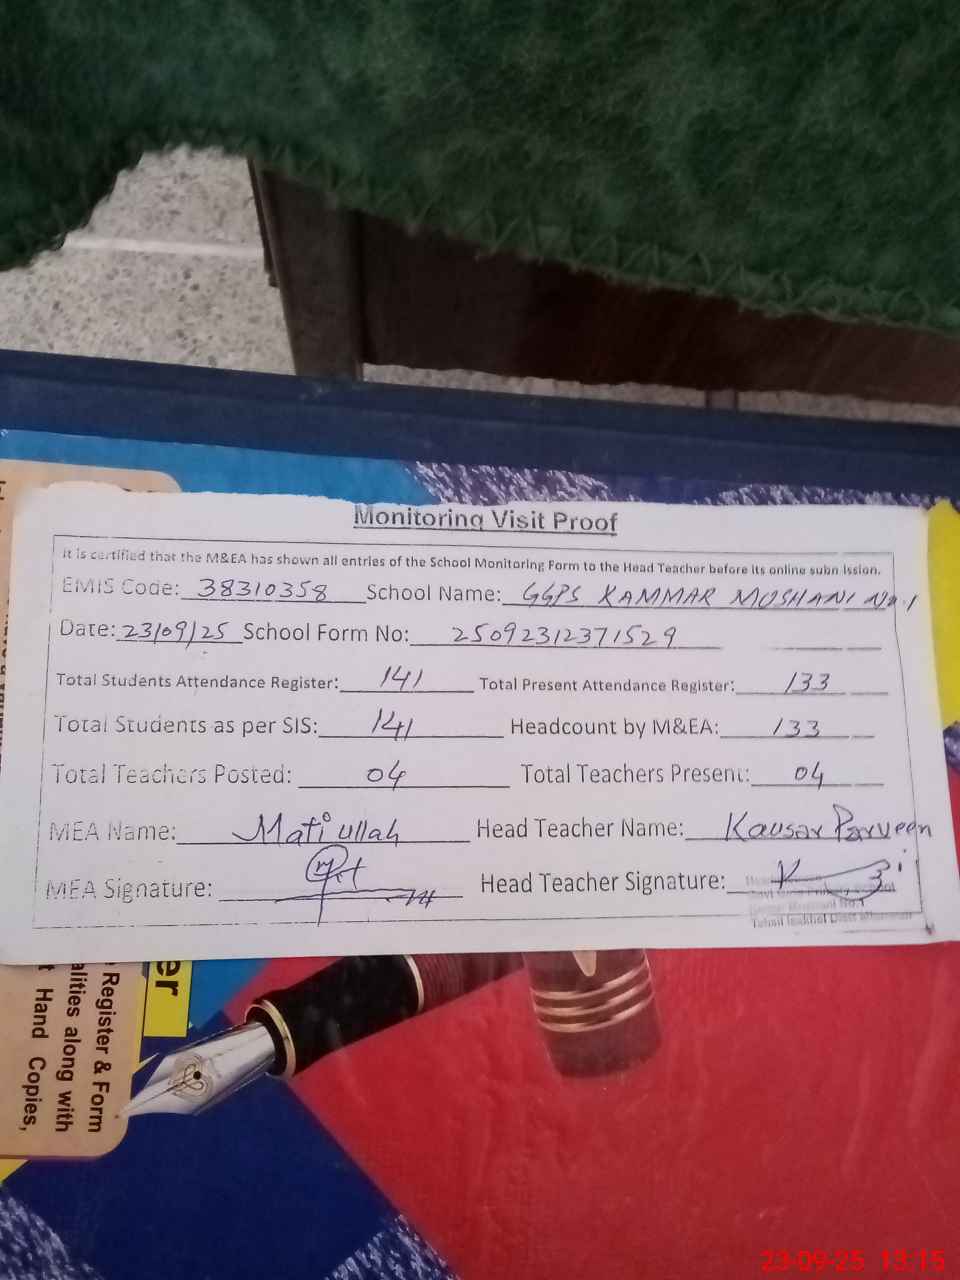 Monitoring Visit Proof
It is certified that the M&EA has shown all entries of the School Monitoring Form to the Head Teacher before its online submission.
EMIS Code: 38310358 School Name: GGPS KAMMAR MUSHANI No.1
Date: 23/09/25 School Form No: 25092312371529
Total Students Attendance Register: 141 Total Present Attendance Register: 133
Total Students as per SIS: 141 Headcount by M&EA: 133
Total Teachers Posted: 04 Total Teachers Present: 04
MEA Name: Mati ullah Head Teacher Name: Kausar Parveen
MEA Signature: Head Teacher Signature:
er
Register & Form
alities along with
t Hand Copies,
23-09-25 13:15